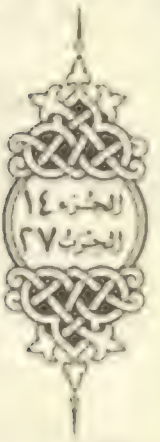 الجزء ١٤
الحزب ٢٧